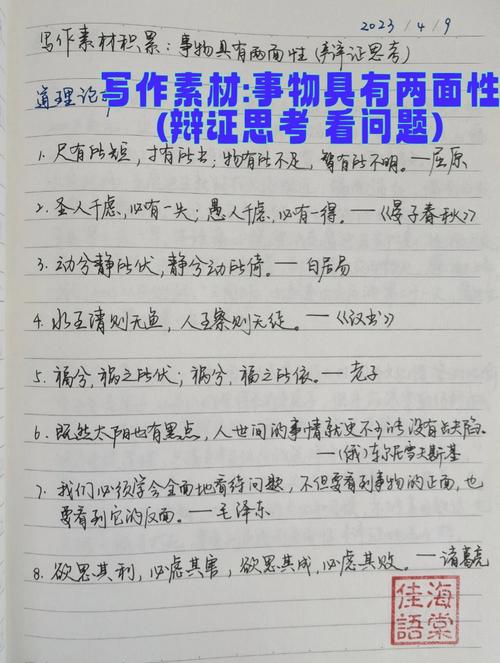 2023/4/9
写作素材积累：事物具有两面性(辩证思考)
道理论
写作素材:事物具有两面性
(辩证思考 看问题)
1. 尺有所短，寸有所长；物有所不足，智有所不明。—屈原
2. 圣人千虑，必有一失；愚人千虑，必有一得。—《晏子春秋》
3. 动兮静所伏，静兮动所倚。— 白居易
4. 水至清则无鱼，人至察则无徒。—《汉书》
5. 福兮，祸之所伏；祸兮，福之所依。— 老子
6. 既然太阳也有黑点，人世间的事情就更不可能没有缺陷。
—(俄)车尔尼雪夫斯基
7. 我们必须学会全面地看待问题，不但要看到事物的正面，也
要看到它的反面。—毛泽东
8. 欲思其利，必虑其害，欲思其成，必虑其败。—诸葛亮
海棠
佳語